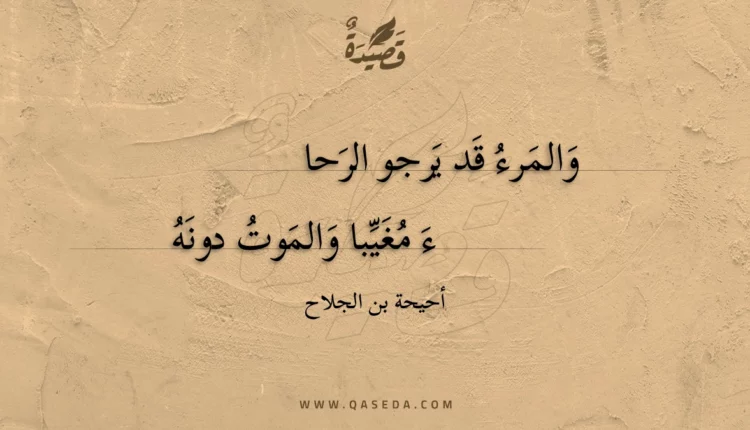 قَصِيدَةٌ
وَالمَرءُ قَد يَرجو الرَحا
ءَ مُغَيِّبا وَالمَوتُ دونَهُ
أحيحة بن الجلاح
WWW.QASEDA.COM